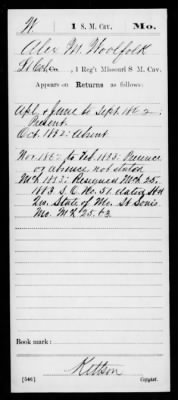 W | 1 S. M. Cav. | Mo.
Alex M. Woolfolk
Lt Col Co. , 1 Reg't Missouri S M. Cav.
Appears on Returns as follows:
Apl. & June to Sept. 1862:
Present.
Oct. 1862: Absent
Nov 1862 to Feb. 1863: Presence
or absence not stated
Mch 1863: Resigned Mch 25,
1863. S. O. No. 51. dated Hd
Qrs. State of Mo. St Louis
Mo. Mch 25. 63
Book mark:
Kittson
(546) Copyist.